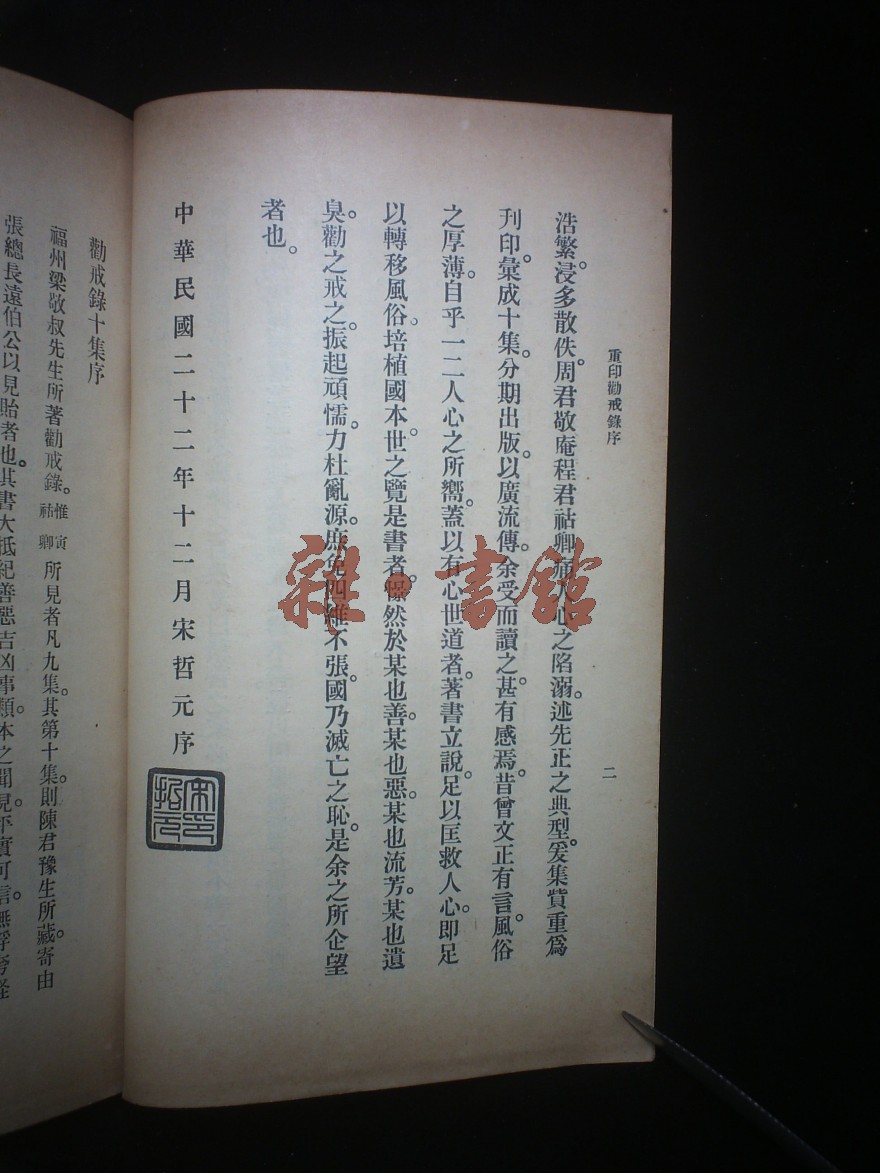 重印勸戒錄序
二
浩繁。浸多散佚。周君敬庵程君祜卿痛人心之陷溺。述先正之典型。爰集貲重爲
刋印。彙成十集。分期出版。以廣流傳。余受而讀之。甚有感焉。昔曾文正有言。風俗
之厚薄。自乎一二人心之所嚮。蓋以有心世道者。著書立說。足以匡救人心。即足
以轉移風俗。培植國本。世之覽是書者。然於某也善。某也惡。某也流芳。某也遺
臭。勸之戒之。振起頑懦。力杜亂源。庶免四維不張。國乃滅亡之恥。是余之所企望
者也。
中華民國二十二年十二月宋哲元序
宋哲元印
勸戒錄十集序
福州梁敬叔先生所著勸戒錄。惟寅祜卿所見者凡九集。其第十集。則陳君豫生所藏。寄由
張總長遠伯公以見貽者也。其書大抵紀善惡吉凶事類。本之聞見。平實可信。無
雜·書館